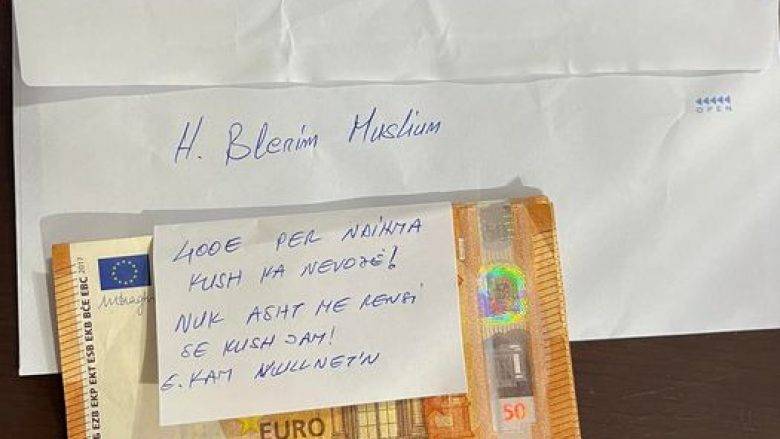 OPEN
H. Blerim Muslium
400E PER NDIHMA
KUSH KA NEVOJË!
NUK ASHT ME RENSI
SE KUSH JAM!
E. KAM
EZB EKP EKT ESB EKB BĊE EBC
2017
EURO
50